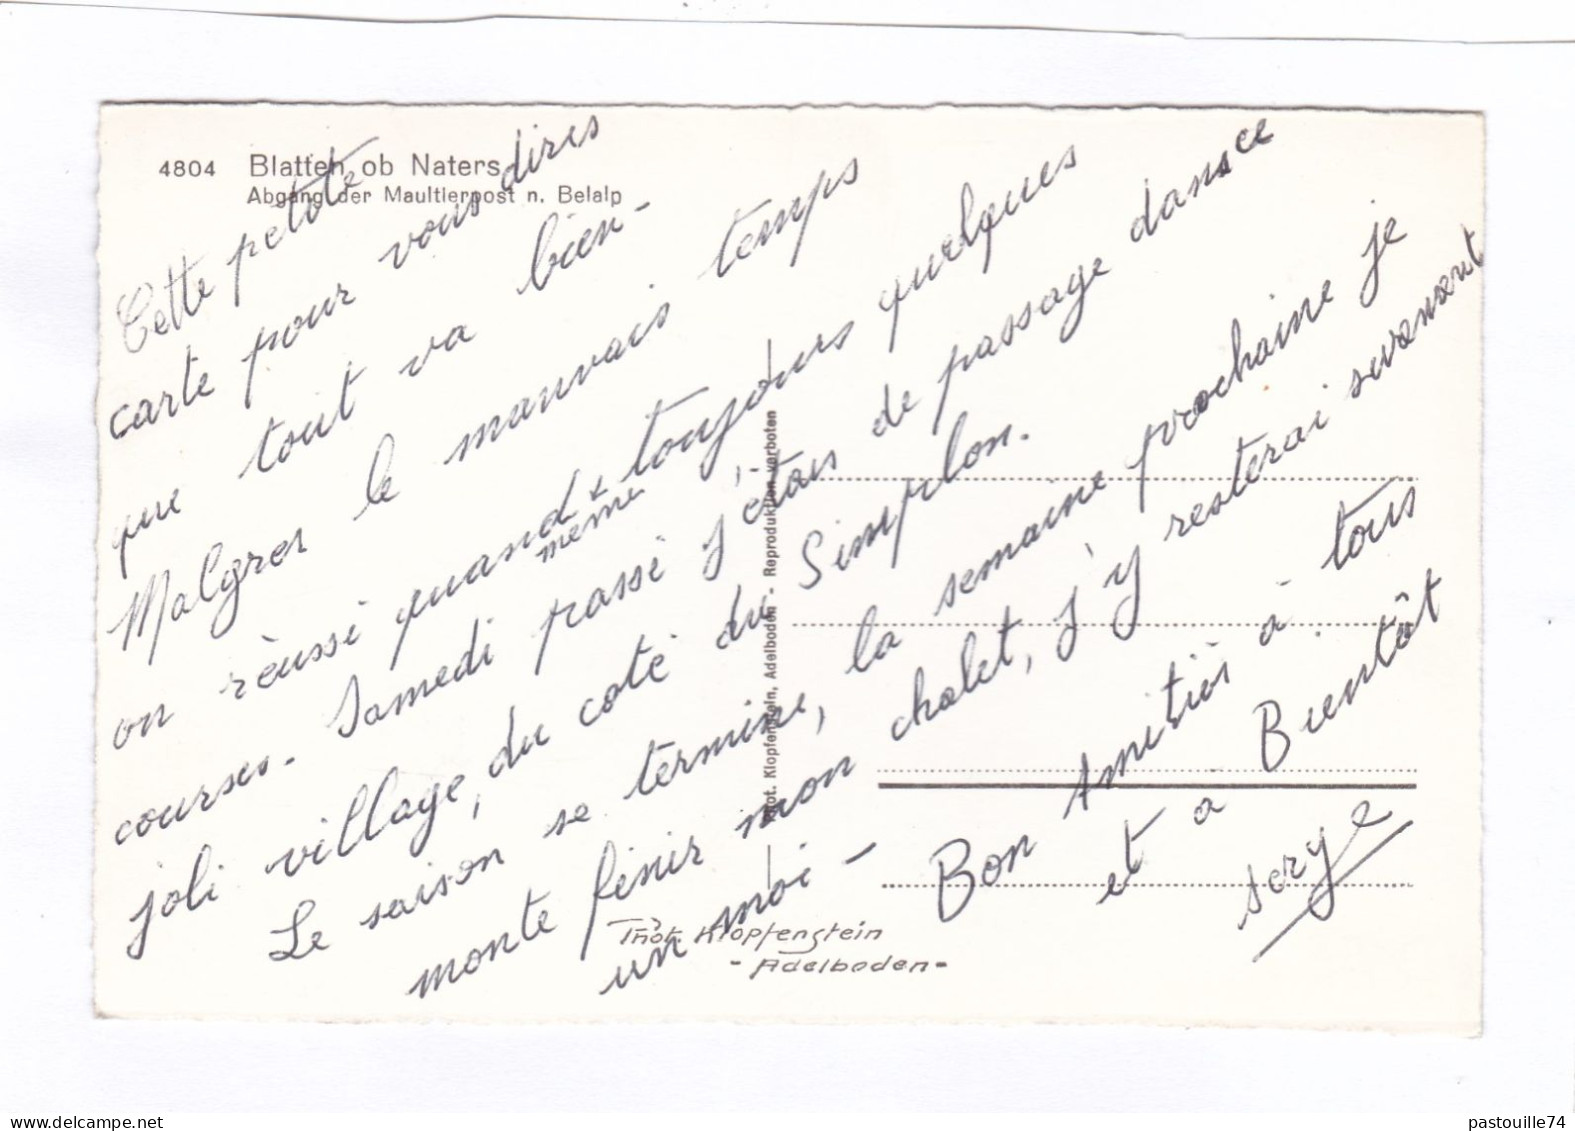 4804 Blatten ob Naters
Abgang der Maultierpost n. Belalp
Cette petote
carte pour vous dires
que tout va bien-
Malgrer le mauvais temps
on rèussi quand même toujours quelques
courses. Samedi passé j'étais de passage dans ce
joli village, du coté du Simplon.
Le saison se termine, la semaine prochaine je
monte finir mon chalet, j'y resterai suremant
un moi -
Bon Amitiés à tous
et a Bientôt
Serge
Phot. Klopfenstein, Adelboden - Reproduktion verboten
Phot. Klopfenstein
- Adelboden -
delcampe.net
pastouille74